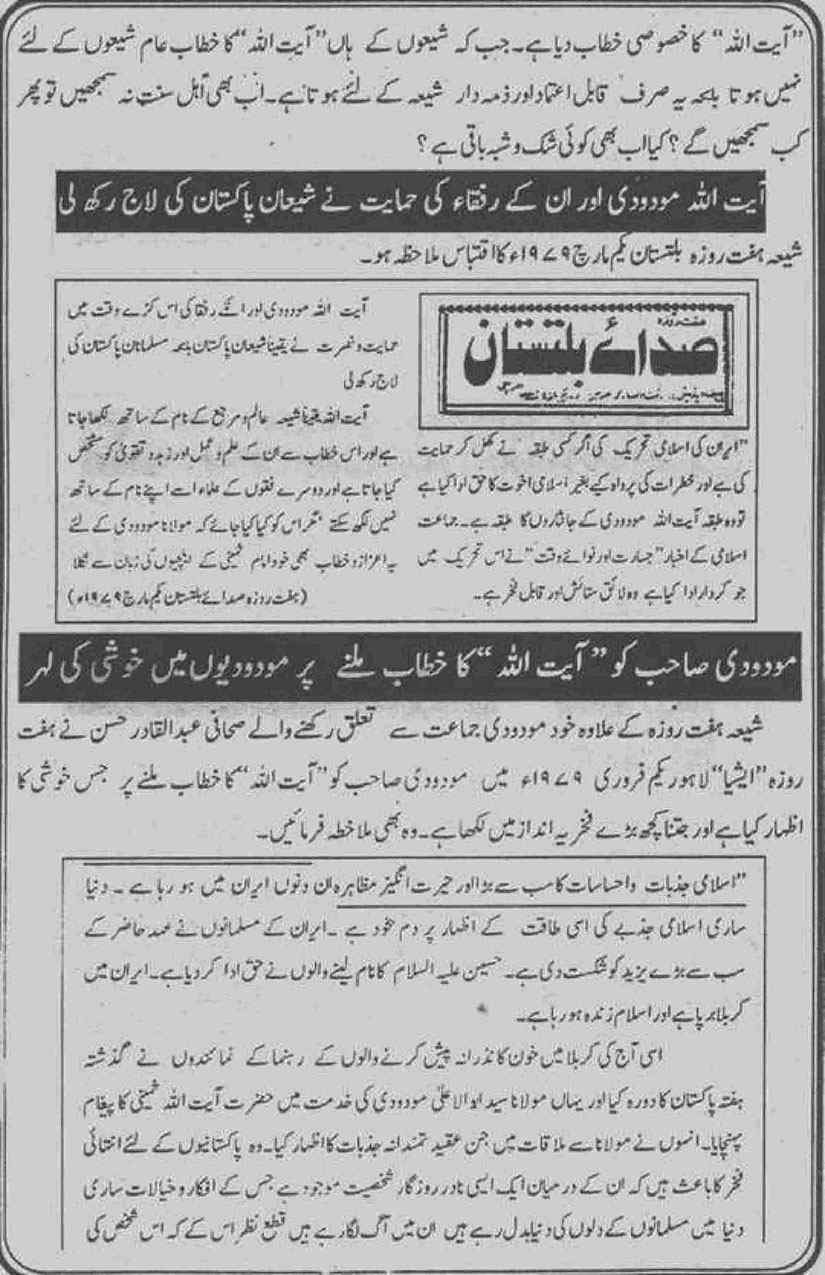 ”آیت اللہ“ کا خصوصی خطاب دیا ہے۔ جب کہ شیعوں کے ہاں ”آیت اللہ“ کا خطاب عام شیعوں کے لئے
نہیں ہوتا بلکہ یہ صرف قابل اعتماد اور ذمہ دار شیعہ کے لئے ہوتا ہے۔ اب بھی اہل سنت نہ سمجھیں تو پھر
کب سمجھیں گے؟ کیا اب بھی کوئی شک و شبہ باقی ہے؟
آیت اللہ مودودی اور ان کے رفقاء کی حمایت نے شیعان پاکستان کی لاج رکھ لی
شیعہ ہفت روزہ بلتستان یکم مارچ ۱۹۷۹ء کا اقتباس ملاحظہ ہو۔
ہفت روزہ
صدائے بلتستان
”ایران کی اسلامی تحریک کی اگر کسی طبقہ نے کھل کر حمایت
کی ہے اور خطرات کی پرواہ کیے بغیر اسلامی اخوت کا حق ادا کیا ہے
تو وہ طبقہ آیت اللہ مودودی کے جانثاروں کا طبقہ ہے۔ جماعت
اسلامی کے اخبار ”جسارت اور نوائے وقت“ نے اس تحریک میں
جو کردار ادا کیا ہے وہ لائق ستائش اور قابل فخر ہے۔
آیت اللہ مودودی اور انکے رفقا کی اس کڑے وقت میں
حمایت و نصرت نے یقینا شیعان پاکستان بلکہ مسلمانان پاکستان کی
لاج رکھ لی
آیت اللہ یقینا شیعہ عالم و مرجع کے نام کے ساتھ لکھا جاتا
ہے اور اس خطاب سے ان کے علم و عمل اور زہد و تقویٰ کو مشخص
کیا جاتا ہے اور دوسرے فقوں کے علماء اسے اپنے نام کے ساتھ
نہیں لکھ سکتے مگر اس کو کیا کیا جائے کہ مولانا مودودی کے لئے
یہ اعزاز و خطاب بھی خود امام خمینی کے ایلچیوں کی زبان سے نکلا
(ہفت روزہ صدائے بلتستان یکم مارچ ۱۹۷۹ء)
مودودی صاحب کو ”آیت اللہ“ کا خطاب ملنے پر مودودیوں میں خوشی کی لہر
شیعہ ہفت روزہ کے علاوہ خود مودودی جماعت سے تعلق رکھنے والے صحافی عبدالقادر حسن نے ہفت
روزہ ”ایشیا“ لاہور یکم فروری ۱۹۷۹ء میں مودودی صاحب کو ”آیت اللہ“ کا خطاب ملنے پر جس خوشی کا
اظہار کیا ہے اور جتنا کچھ بڑے فخریہ انداز میں لکھا ہے۔ وہ بھی ملاحظہ فرمائیں۔
”اسلامی جذبات واحساسات کا سب سے بڑا اور حیرت انگیز مظاہرہ ان دنوں ایران میں ہو رہا ہے۔ دنیا
ساری اسلامی جذبے کی اسی طاقت کے اظہار پر دم بخود ہے۔ ایران کے مسلمانوں نے عہد حاضر کے
سب سے بڑے یزید کو شکست دی ہے۔ حسین علیہ السلام کا نام لینے والوں نے حق ادا کر دیا ہے۔ ایران میں
کربلا برپا ہے اور اسلام زندہ ہو رہا ہے۔
اسی آج کی کربلا میں خون کا نذرانہ پیش کرنے والوں کے رہنما کے نمائندوں نے گذشتہ
ہفتہ پاکستان کا دورہ کیا اور یہاں مولانا سید ابوالاعلیٰ مودودی کی خدمت میں حضرت آیت اللہ خمینی کا پیغام
پہنچایا۔ انہوں نے مولانا سے ملاقات میں جن عقیدتمندانہ جذبات کا اظہار کیا۔ وہ پاکستانیوں کے لئے انتہائی
فخر کا باعث ہیں کہ ان کے درمیان ایک ایسی نادر روزگار شخصیت موجود ہے جس کے افکار و خیالات ساری
دنیا میں مسلمانوں کے دلوں کی دنیا بدل رہے ہیں ان میں آگ لگا رہے ہیں قطع نظر اس کے کہ اس شخص کی